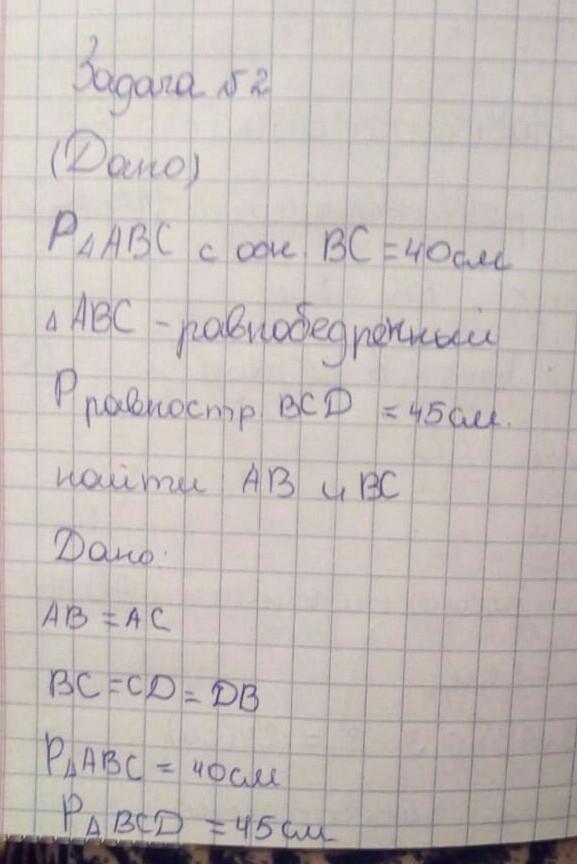 Задача №2
(Дано)
P△ABC с осн BC = 40 см
△ABC - равнобедренный
P равностр. BCD = 45 см.
найти AB и BC
Дано:
AB = AC
BC = CD = DB
P△ABC = 40 см
P△BCD = 45 см